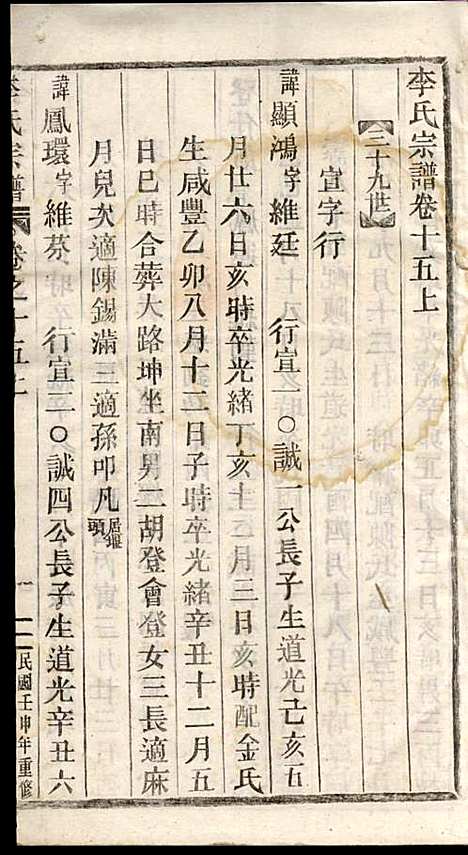 李氏宗譜卷十五上
【三十九世】
宣字行
諱顯鴻字維廷 行宣一〇誠一公長子生道光己亥五
月廿六日亥時卒光緒丁亥十二月三日亥時配金氏
生咸豐乙卯八月十二日子時卒光緒辛丑十二月五
日巳時合葬大路坤坐南男二胡登會登女三長適麻
月兒次適陳錫滿三適孫叩凡居堰頭
諱鳳環字維芬 行宣二〇誠四公長子生道光辛丑六
李氏宗譜 卷之十五上 一 民國壬申年重修